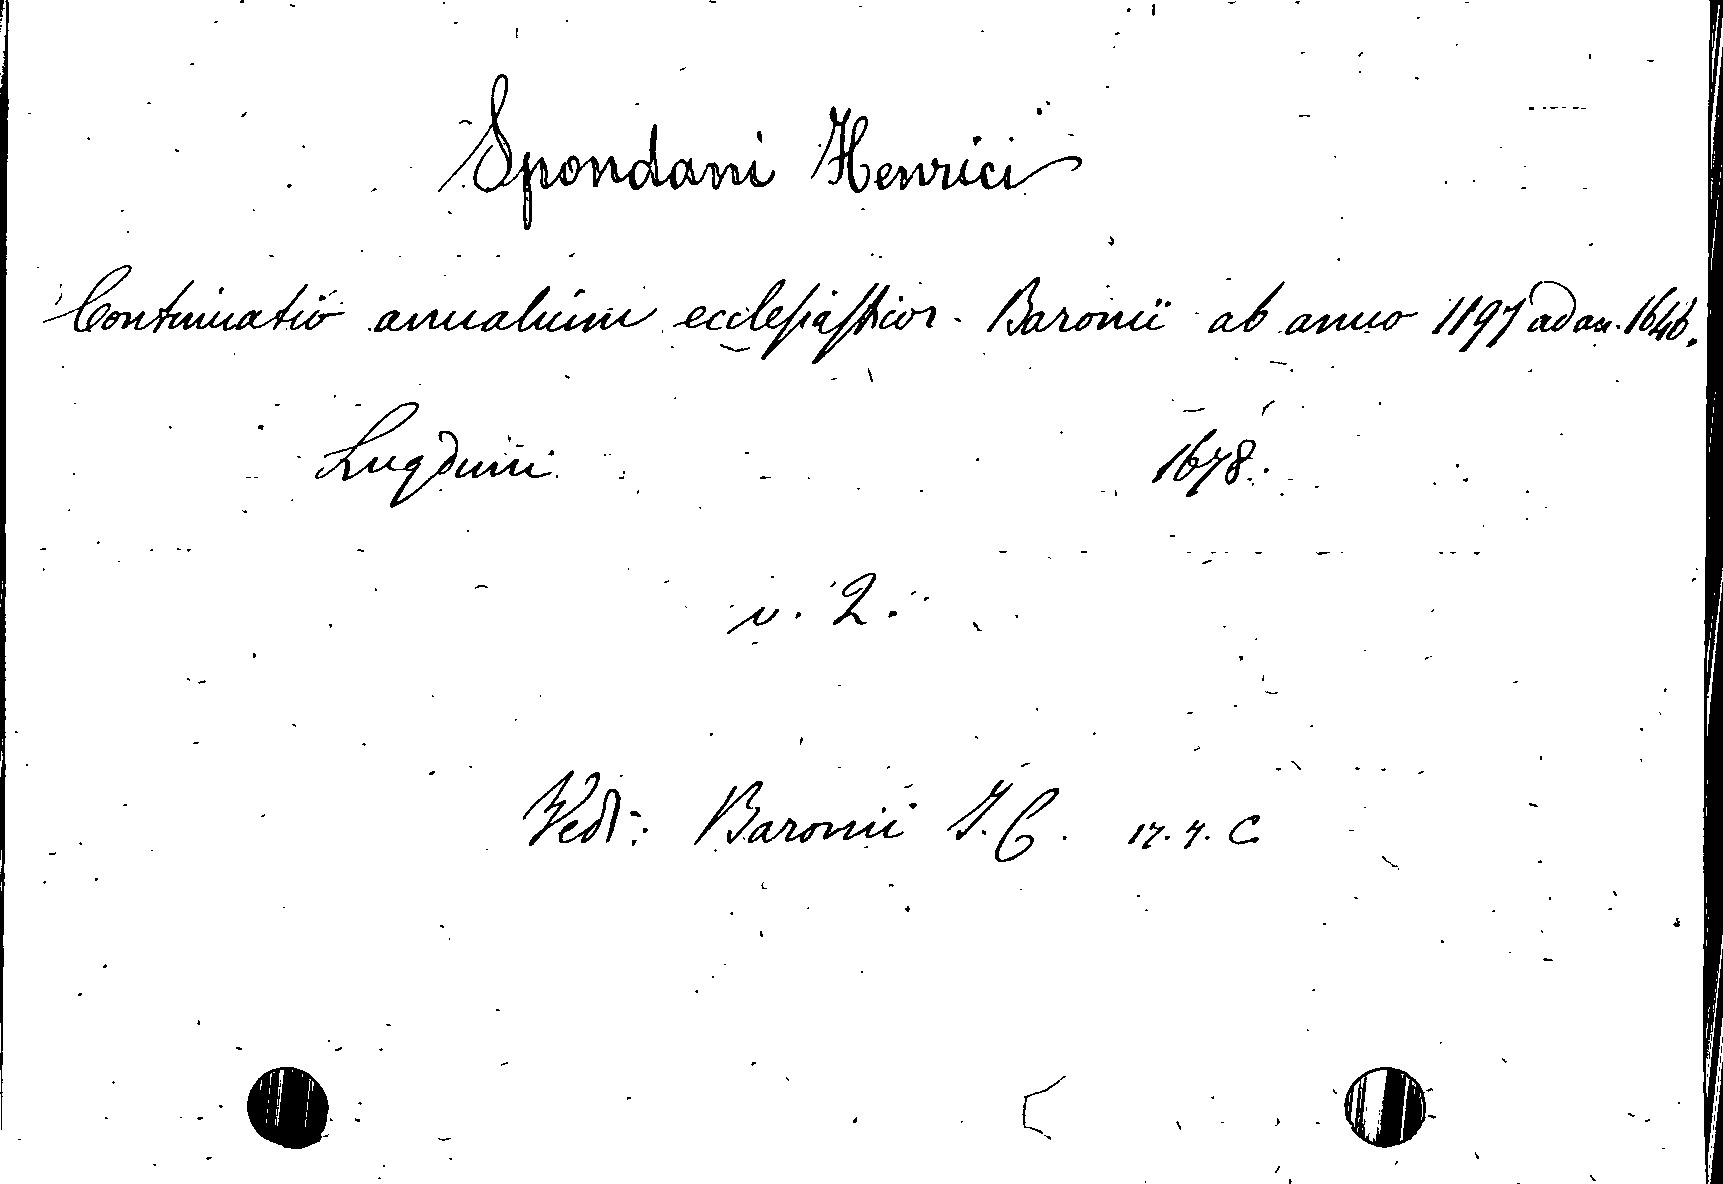 Spondani Henrici
Continuatio annalium ecclesiasticor. Baronii ab anno 1197 ad an. 1646.
Lugduni 1678.
v. 2.
Ved: Baronii I. C. 17. 7. C